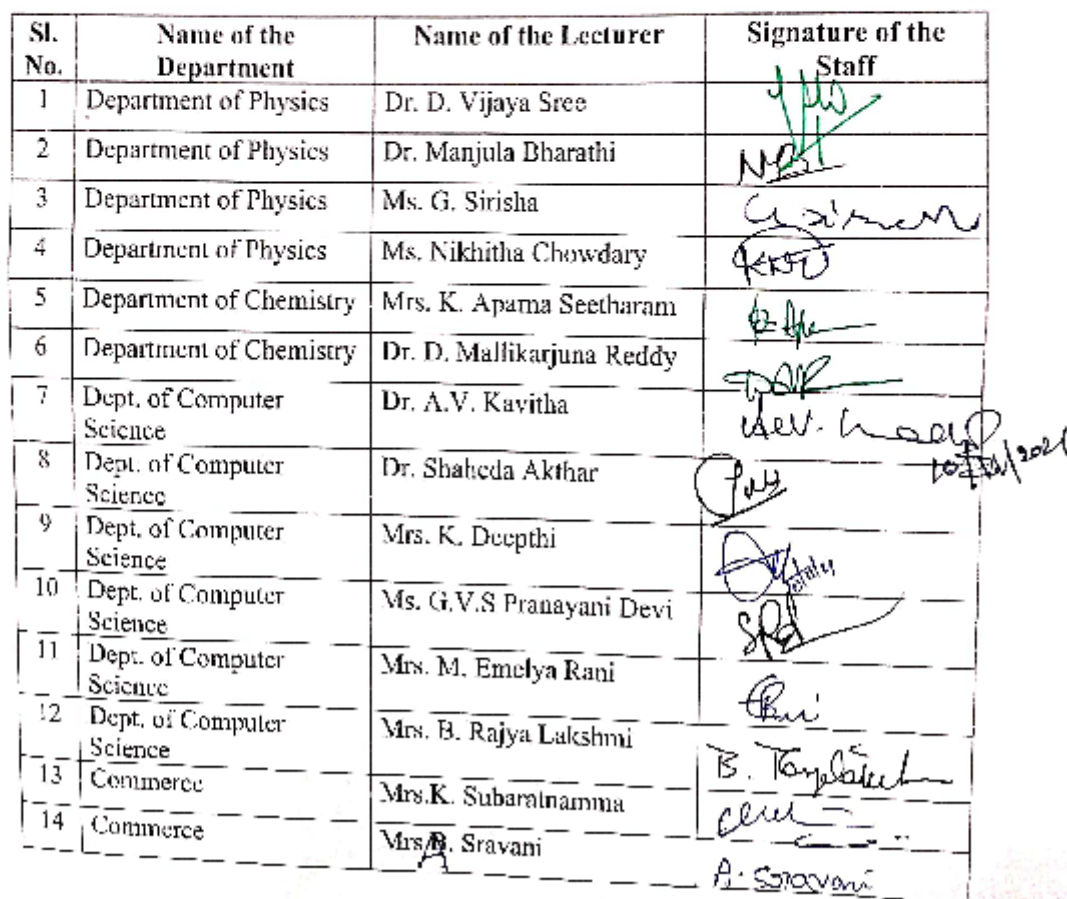 Sl. No. Name of the Department Name of the Lecturer Signature of the Staff
1 Department of Physics Dr. D. Vijaya Sree
2 Department of Physics Dr. Manjula Bharathi
3 Department of Physics Ms. G. Sirisha
4 Department of Physics Ms. Nikhitha Chowdary
5 Department of Chemistry Mrs. K. Aparna Seetharam
6 Department of Chemistry Dr. D. Mallikarjuna Reddy
7 Dept. of Computer Science Dr. A.V. Kavitha
8 Dept. of Computer Science Dr. Shaheda Akthar
9 Dept. of Computer Science Mrs. K. Deepthi
10 Dept. of Computer Science Ms. G.V.S Pranayani Devi
11 Dept. of Computer Science Mrs. M. Emelya Rani
12 Dept. of Computer Science Mrs. B. Rajya Lakshmi
13 Commerce Mrs.K. Subaratnamma
14 Commerce Mrs A. Sravani A. Sravani